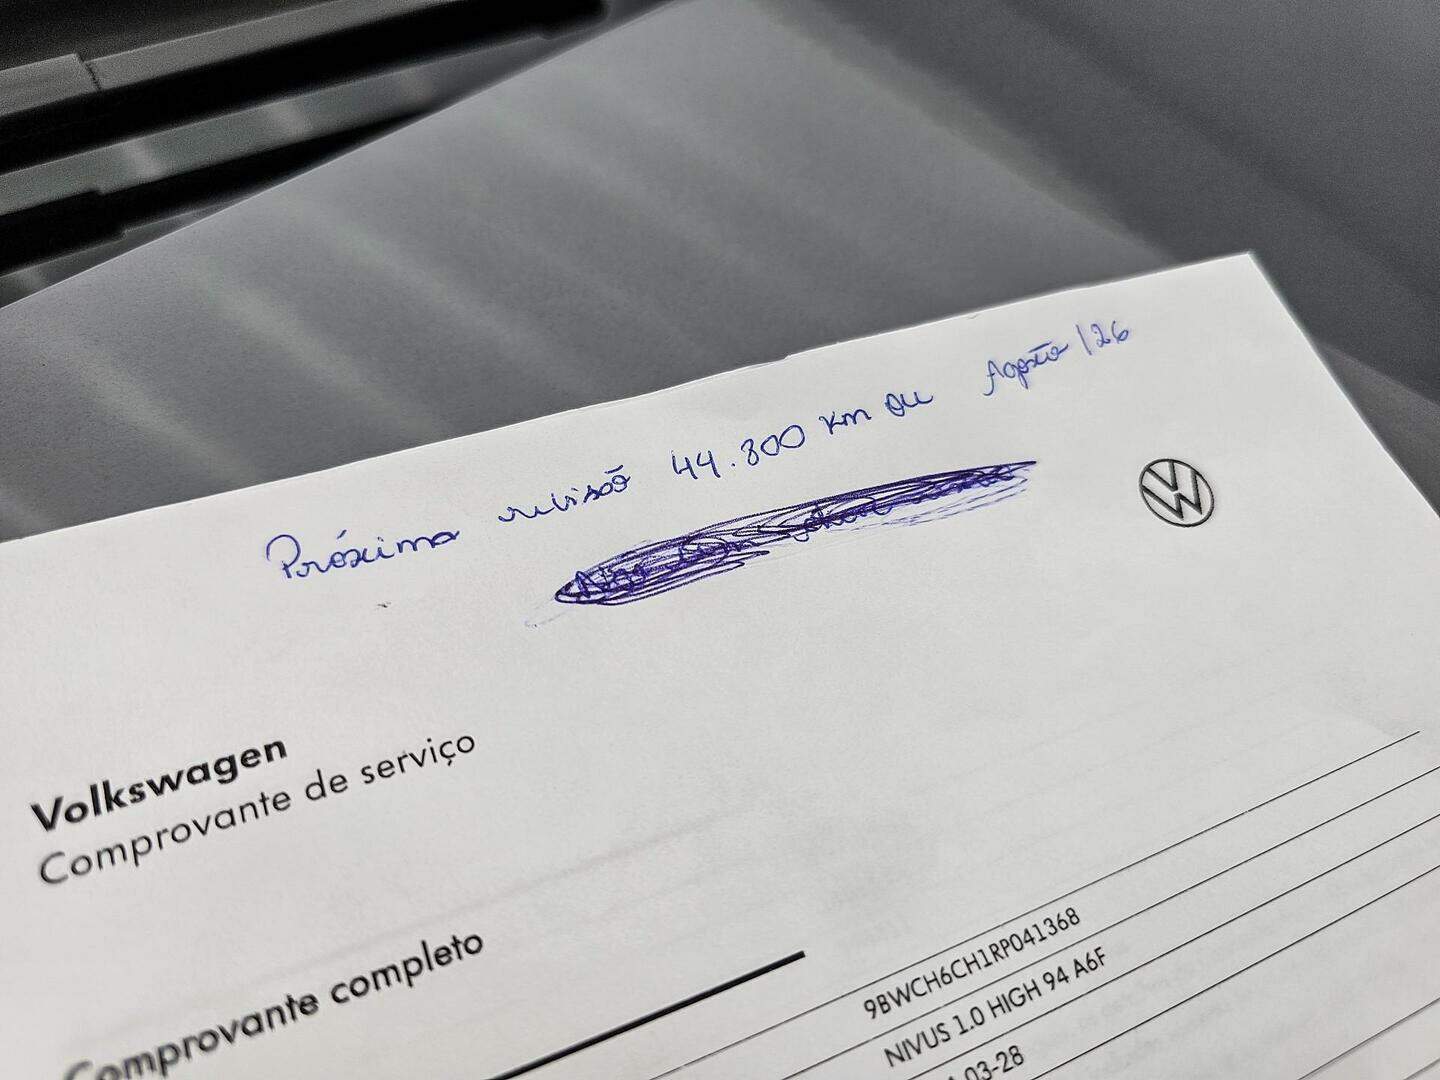 Próxima revisão 44.800 km ou Agosto /26
Volkswagen
Comprovante de serviço
Comprovante completo
9BWCH6CH1RP041368
NIVUS 1.0 HIGH 94 A6F
03-28